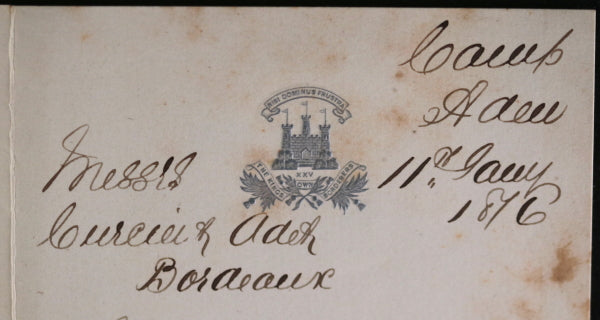 Camp
Aden
11th Jany
1876
NISI DOMINUS FRUSTRA
XXV
THE KINGS OWN BORDERERS
Messrs
Bordeaux